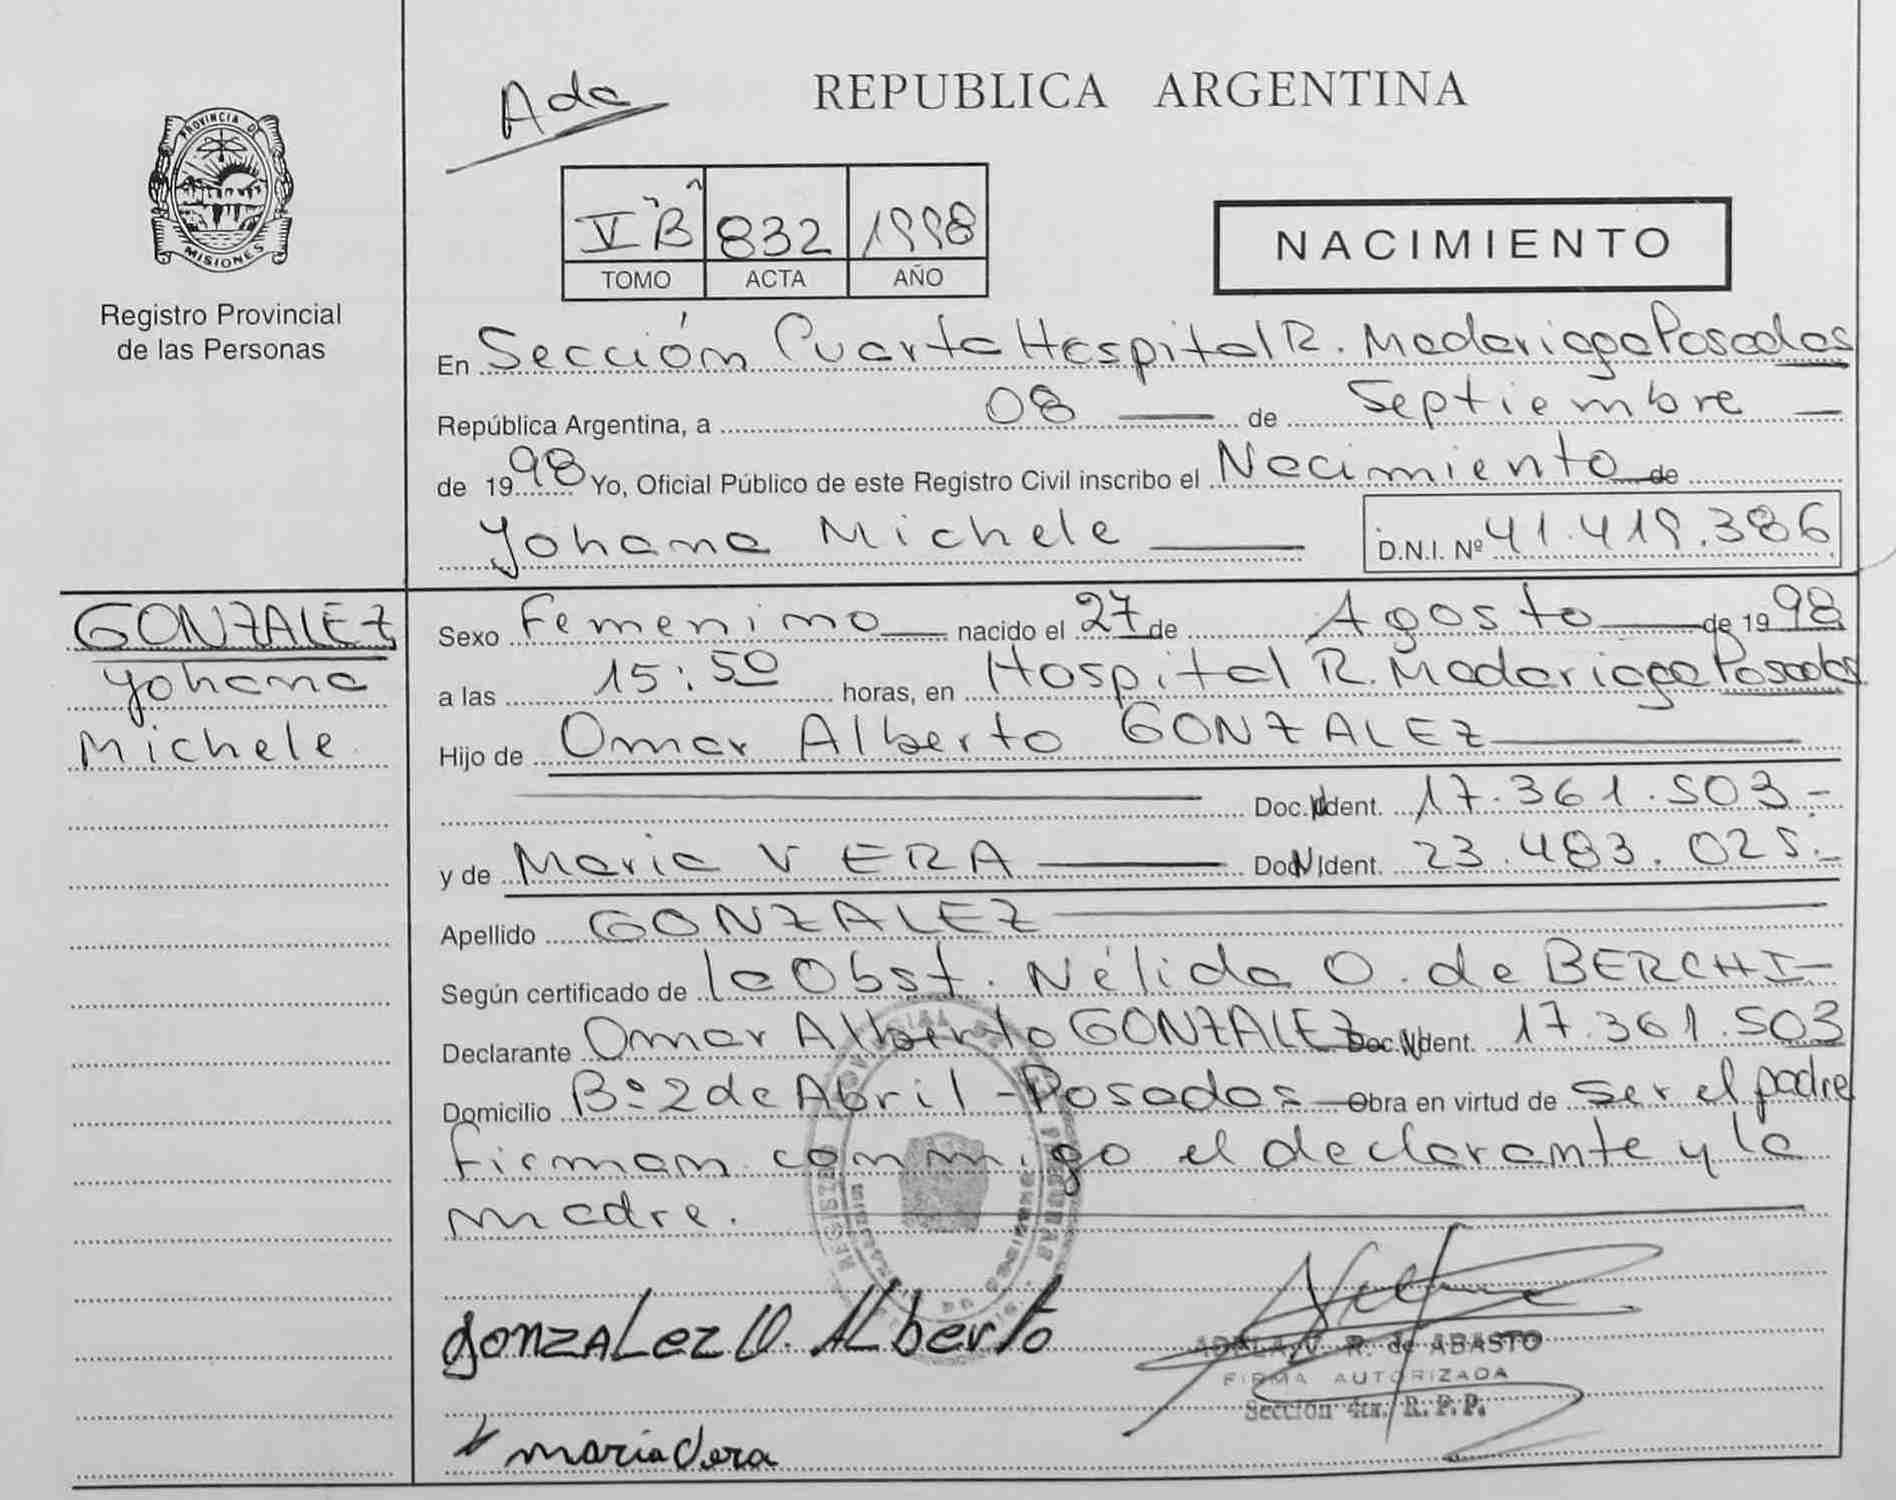 Ada
REPUBLICA ARGENTINA
PROVINCIA DE
MISIONES
Registro Provincial
de las Personas
V "B" 832 1998
TOMO ACTA AÑO
NACIMIENTO
En Sección Cuarta Hospital R. Madariaga Posadas
República Argentina, a 08 de Septiembre
de 1998 Yo, Oficial Público de este Registro Civil inscribo el Nacimiento de
Yohana Michele D.N.I. Nº 41.419.386
GONZALEZ
Yohana
Michele
Sexo Femenino nacido el 27 de Agosto de 1998
a las 15:50 horas, en Hospital R. Madariaga Posadas
Hijo de Omar Alberto GONZALEZ
Doc. Ident. 17.361.503.-
y de Maria VERA Doc. Ident. 23.483.025.-
Apellido GONZALEZ
Según certificado de la Obst. Nélida O. de BERCHI
Declarante Omar Alberto GONZALEZ Doc. Ident. 17.361.503
Domicilio Bº 2 de Abril - Posadas Obra en virtud de ser el padre
firman conmigo el declarante y la
madre.
gonzALez O. ALberto
ADELA V. R. de ABASTO
FIRMA AUTORIZADA
Sección 4ta. R. P. P.
maria Vera